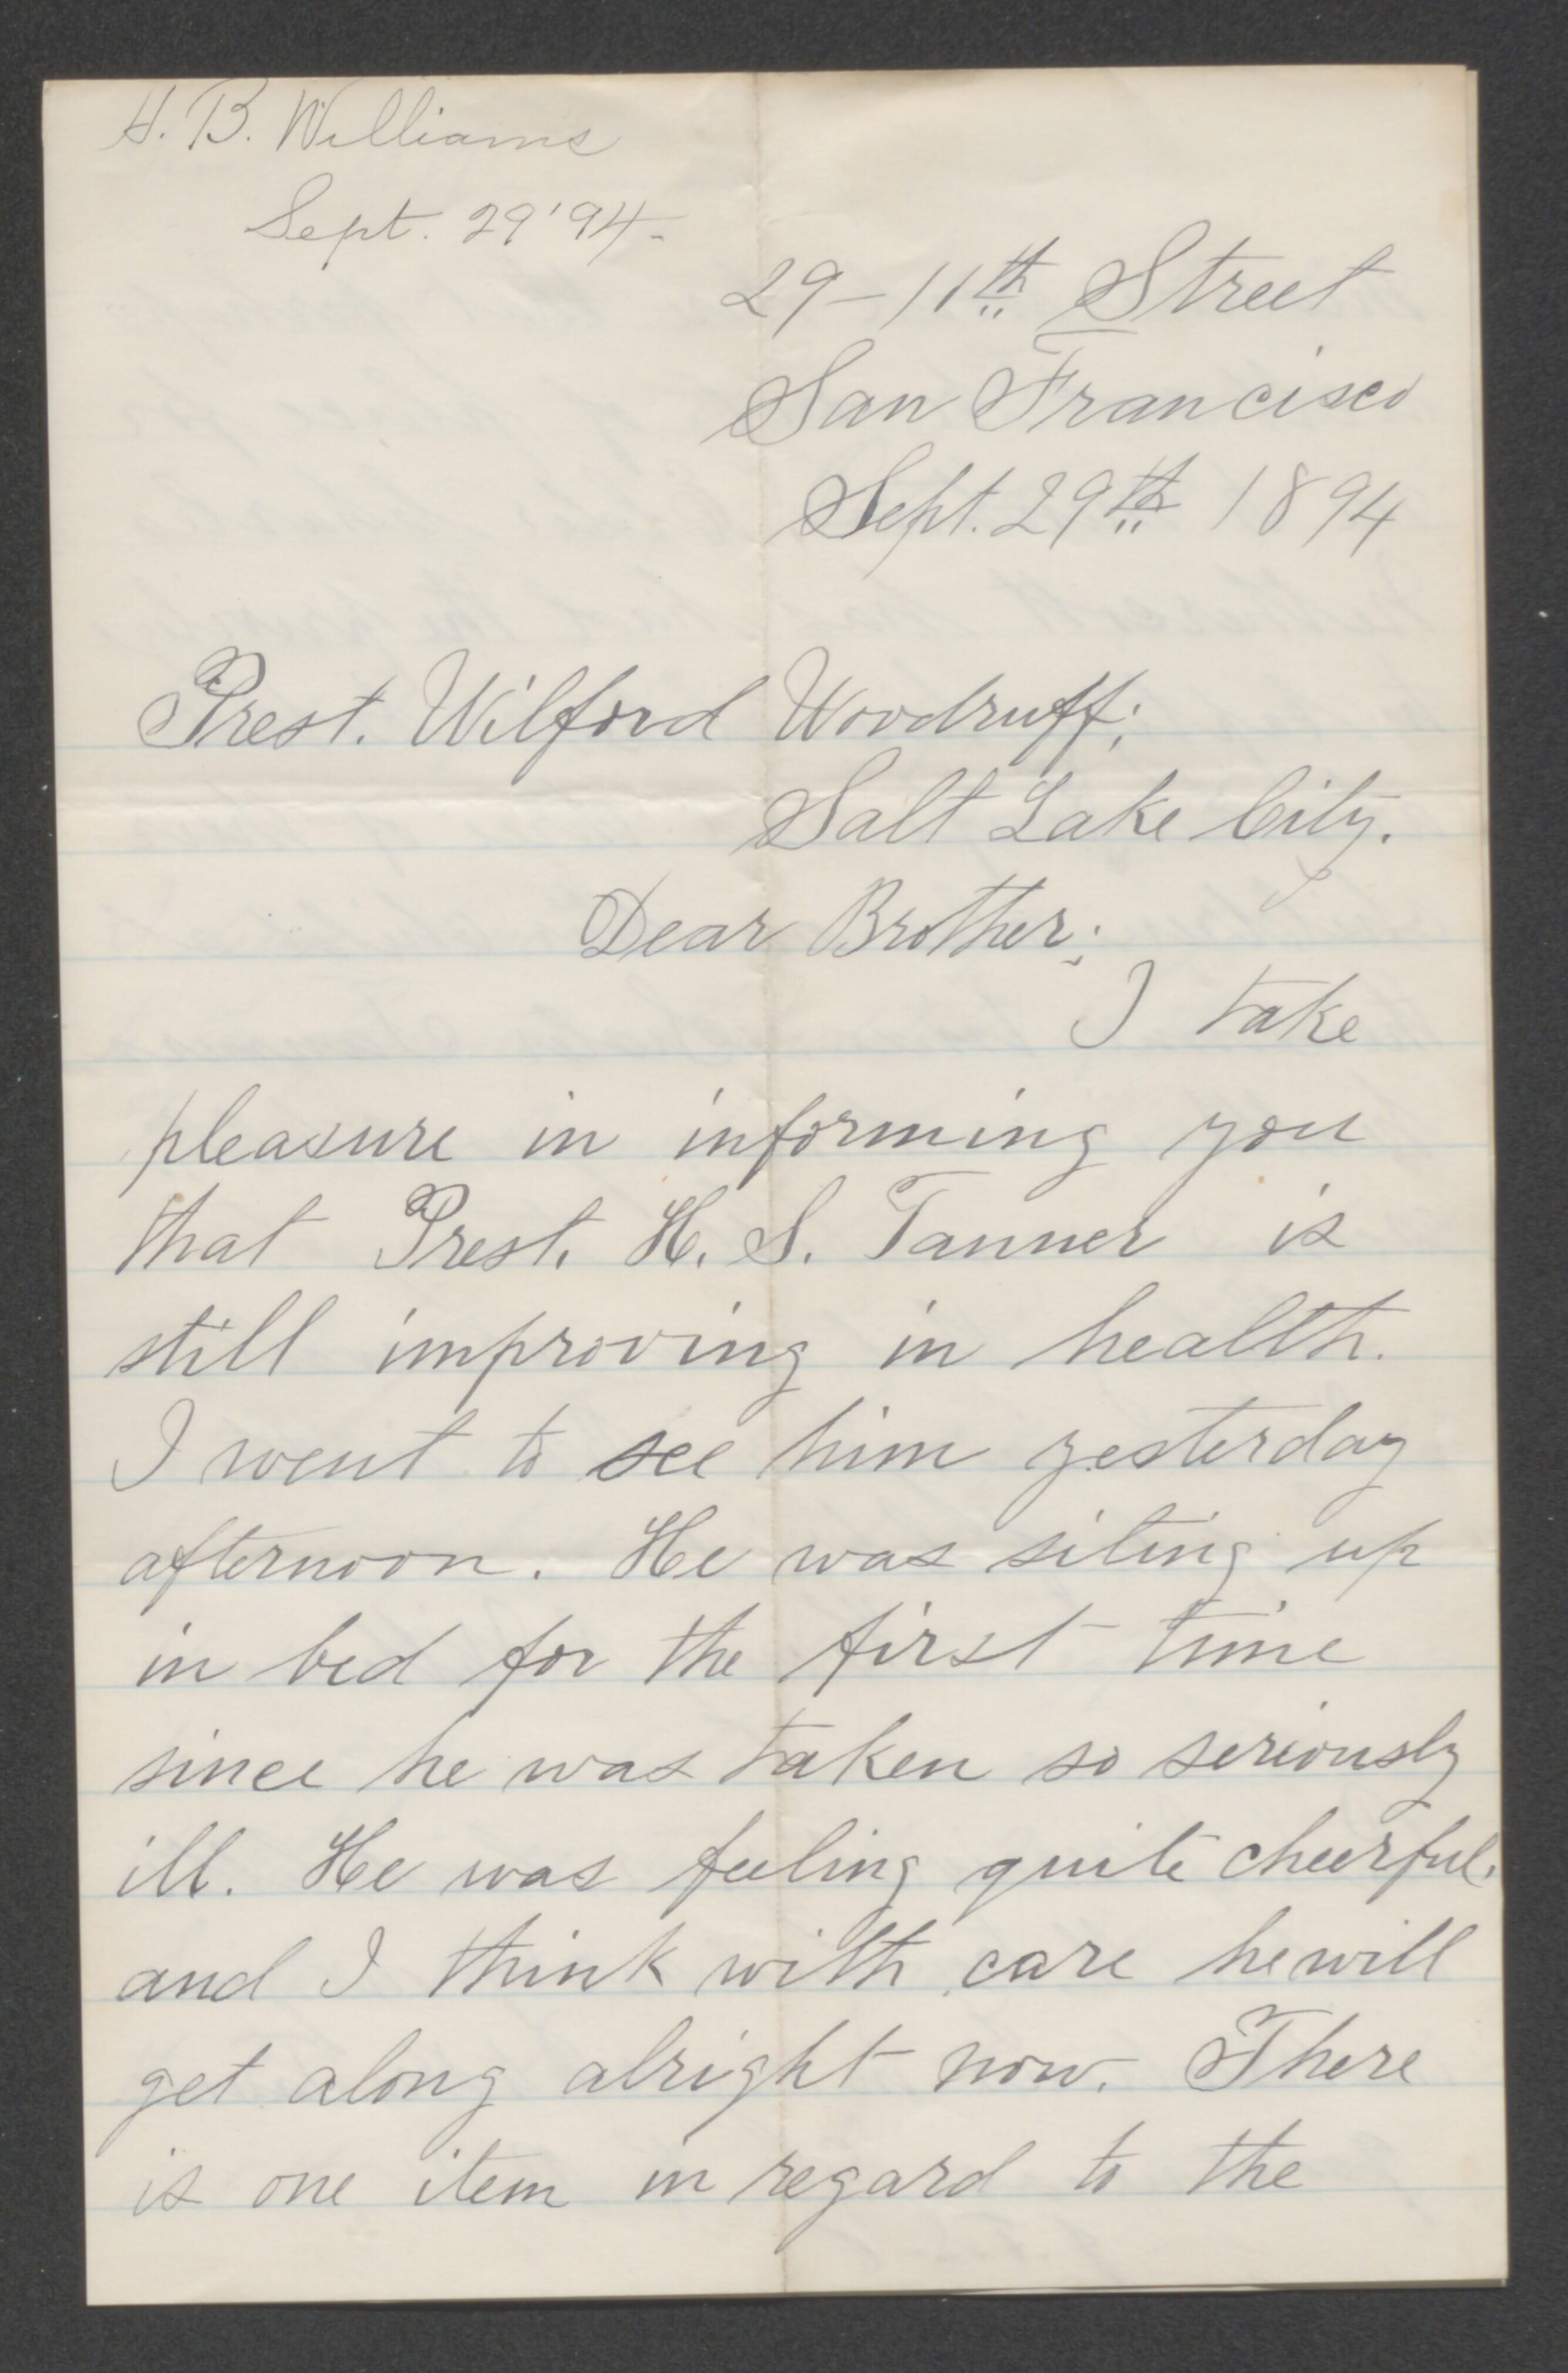 H. B. Williams
Sept. 29 '94.
29 – 11th Street
San Francisco
Sept. 29th 1894
Prest. Wilford Woodruff;
Salt Lake City.
Dear Brother;
I take
pleasure in informing you
that Prest. H. S. Tanner is
still improving in health.
I went to see him yesterday
afternoon. He was siting up
in bed for the first time
since he was taken so seriously
ill. He was feeling quite cheerful.
and I think with care he will
get along alright now. There
is one item in regard to the